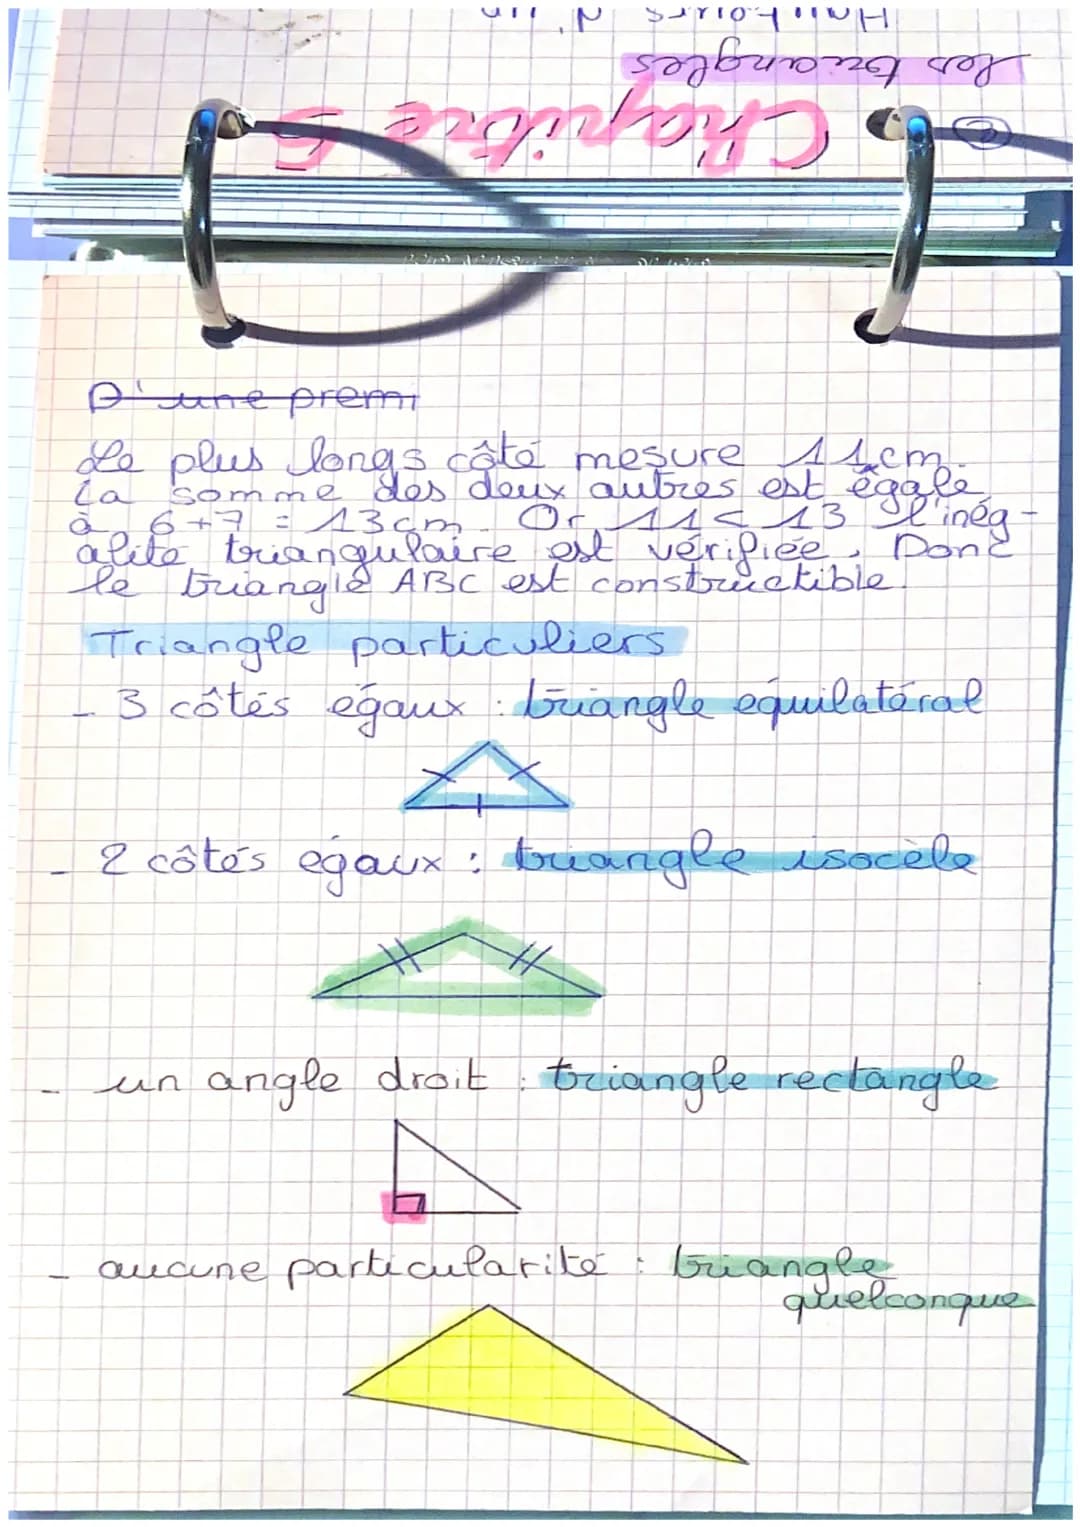 Chapitre 5
les triangles
Hauteurs d'un
D'une premi
Le plus longs côté mesure 11cm.
La somme des deux autres est égale
à 6+7 = 13cm. Or 11 < 13 l'inég-
alité triangulaire est vérifiée. Donc
le triangle ABC est constructible.
Triangle particuliers
- 3 côtés égaux : triangle équilatéral
- 2 côtés égaux : triangle isocèle
- un angle droit : triangle rectangle
- aucune particularité : triangle
quelconque